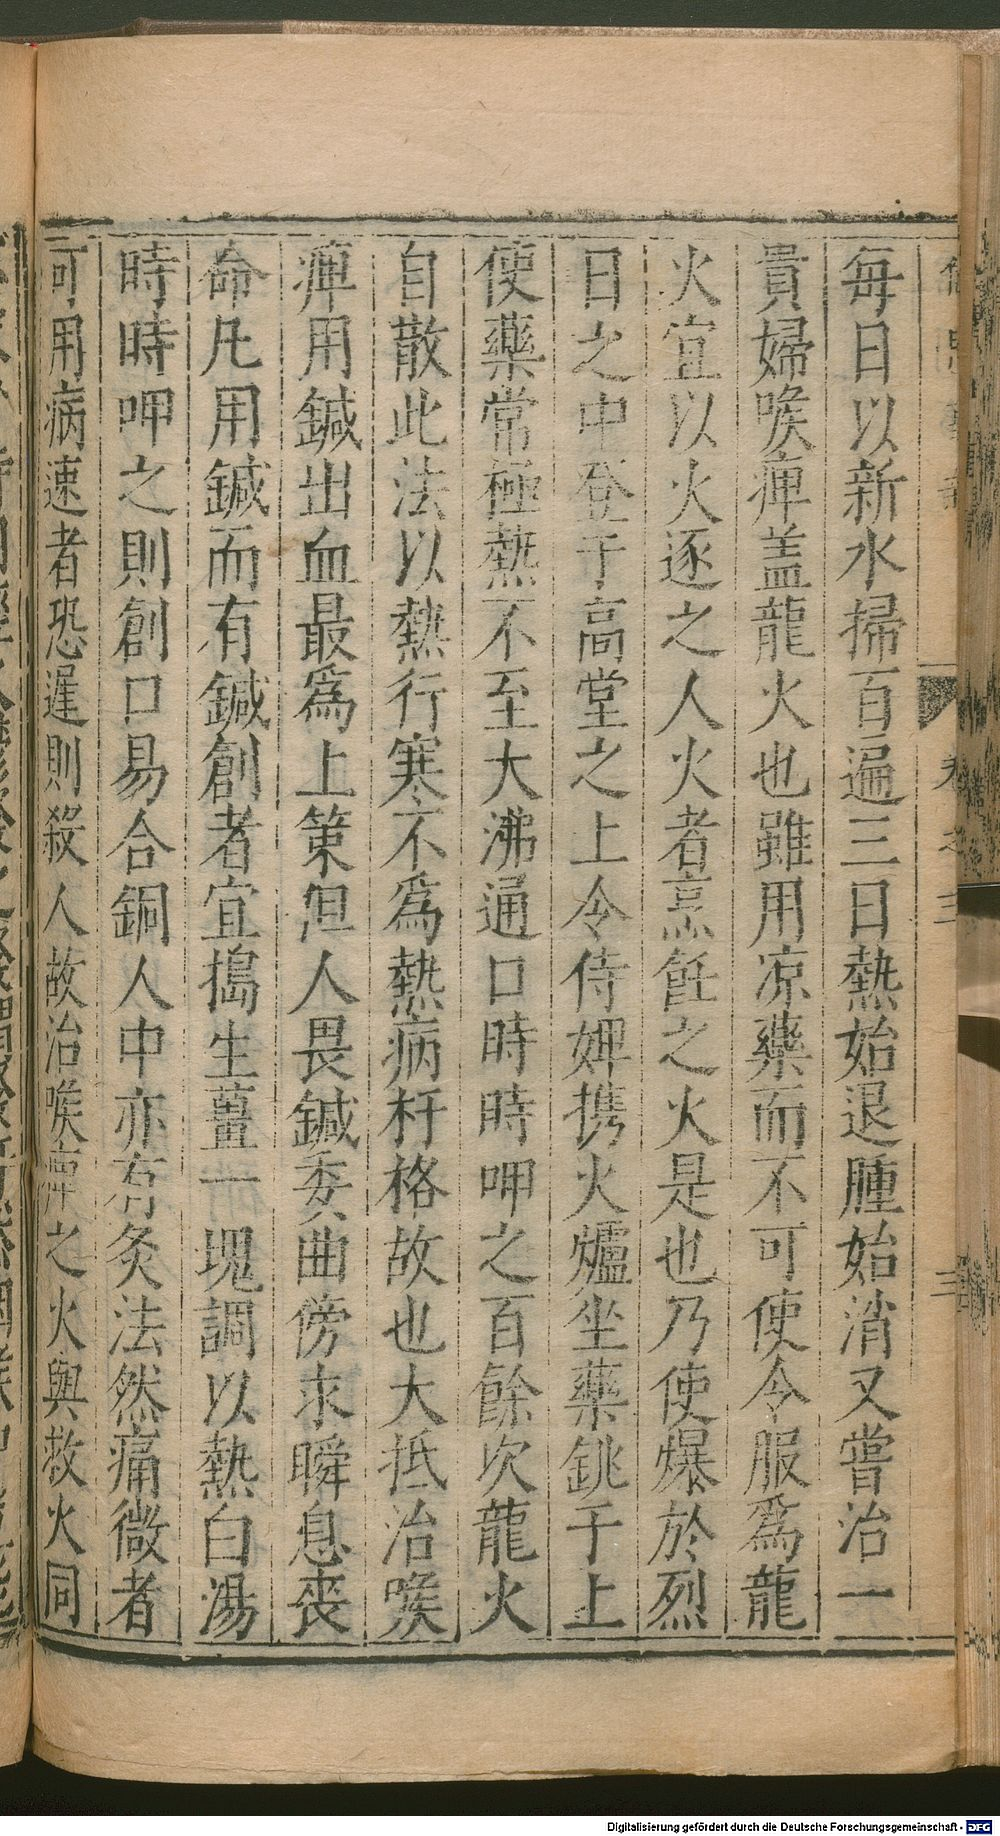 每日以新水掃百遍三日熱始退腫始消又嘗治一
貴婦喉痺盖龍火也雖用凉藥而不可使令服爲龍
火宜以火逐之人火者烹飪之火是也乃使爆於烈
日之中登于高堂之上令侍婢携火爐坐藥銚于上
使藥常極熱不至大沸通口時時呷之百餘次龍火
自散此法以熱行寒不爲熱病杆格故也大抵治喉
痺用鍼出血最爲上策但人畏鍼委曲傍求瞬息喪
命凡用鍼而有鍼創者宜搗生薑一塊調以熱白湯
時時呷之則創口易合銅人中亦有灸法然痛微者
可用病速者恐遲則殺人故治喉痺之火與救火同
卷之三
三
Digitalisierung gefördert durch die Deutsche Forschungsgemeinschaft - DFG